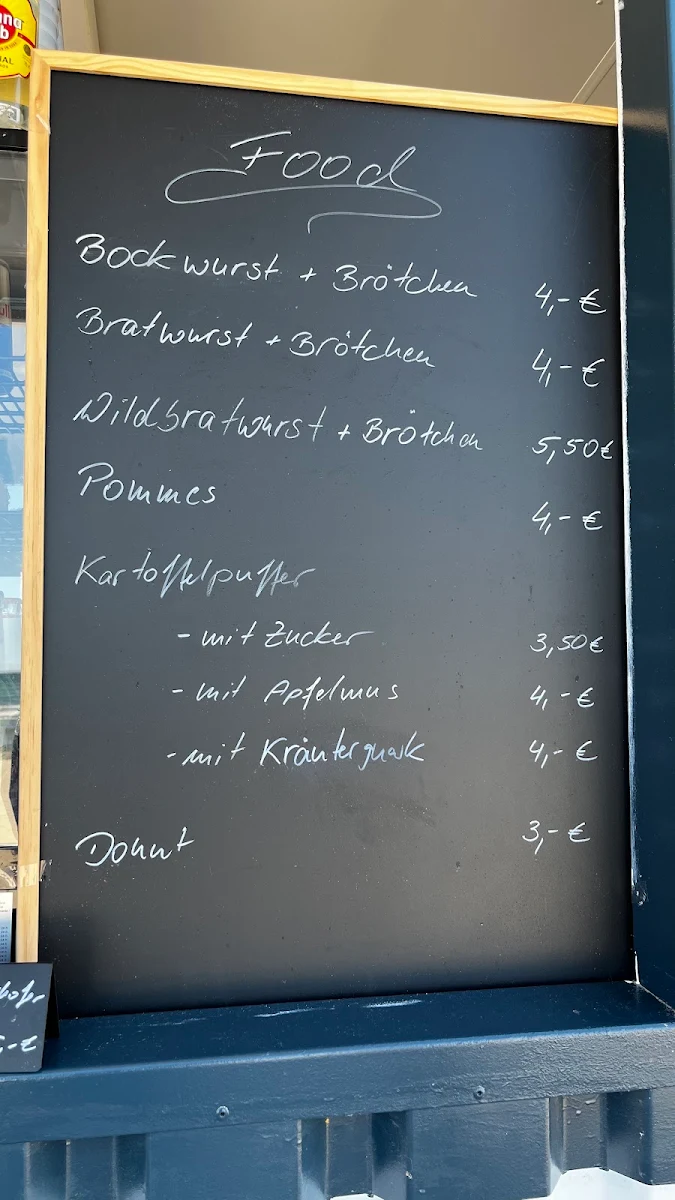 Food
Bockwurst + Brötchen 4,- €
Bratwurst + Brötchen 4,- €
Wildbratwurst + Brötchen 5,50€
Pommes 4,- €
Kartoffelpuffer
- mit Zucker 3,50€
- mit Apfelmus 4,- €
- mit Kräuterquark 4,- €
Donut 3,- €